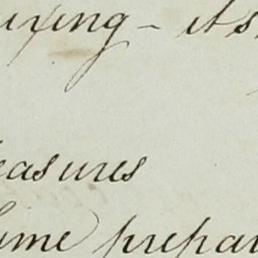 uring - its
easures
lime prepar